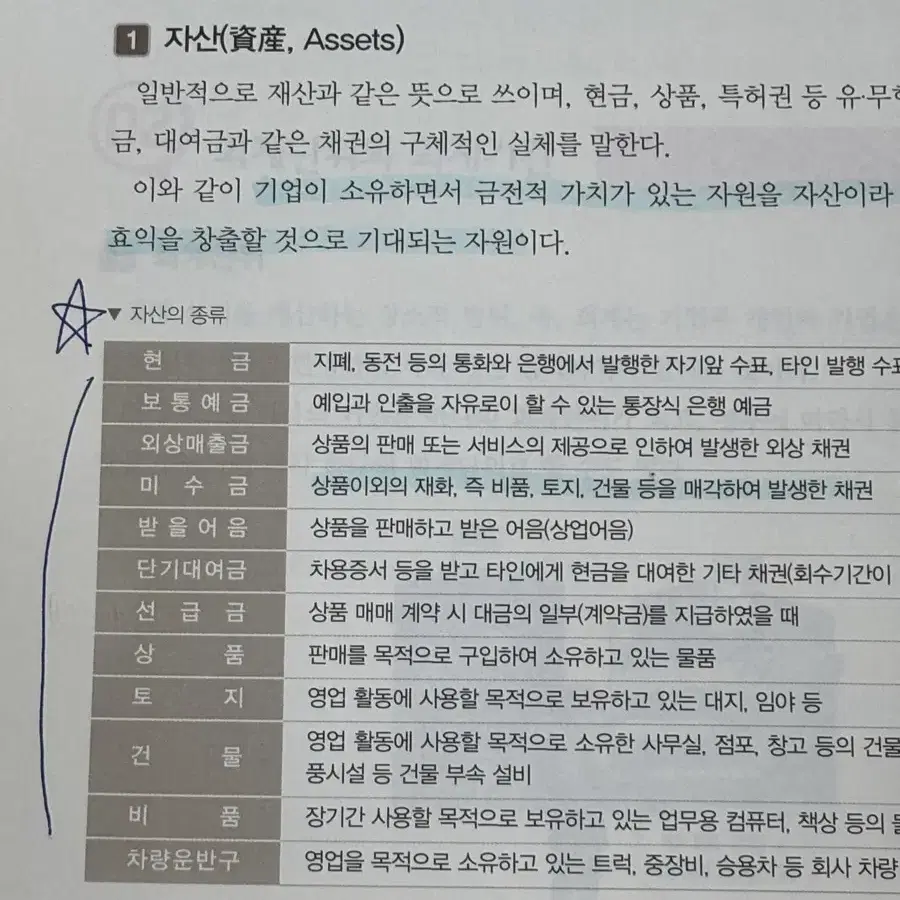 1 자산(資産, Assets)
일반적으로 재산과 같은 뜻으로 쓰이며, 현금, 상품, 특허권 등 유·무
금, 대여금과 같은 채권의 구체적인 실체를 말한다.
이와 같이 기업이 소유하면서 금전적 가치가 있는 자원을 자산이라
효익을 창출할 것으로 기대되는 자원이다.
▼ 자산의 종류
현 금 지폐, 동전 등의 통화와 은행에서 발행한 자기앞 수표, 타인 발행 수표
보 통 예 금 예입과 인출을 자유로이 할 수 있는 통장식 은행 예금
외상매출금 상품의 판매 또는 서비스의 제공으로 인하여 발생한 외상 채권
미 수 금 상품이외의 재화, 즉 비품, 토지, 건물 등을 매각하여 발생한 채권
받 을 어 음 상품을 판매하고 받은 어음(상업어음)
단기대여금 차용증서 등을 받고 타인에게 현금을 대여한 기타 채권(회수기간이
선 급 금 상품 매매 계약 시 대금의 일부(계약금)를 지급하였을 때
상 품 판매를 목적으로 구입하여 소유하고 있는 물품
토 지 영업 활동에 사용할 목적으로 보유하고 있는 대지, 임야 등
건 물 영업 활동에 사용할 목적으로 소유한 사무실, 점포, 창고 등의 건물
풍시설 등 건물 부속 설비
비 품 장기간 사용할 목적으로 보유하고 있는 업무용 컴퓨터, 책상 등의
차량운반구 영업을 목적으로 소유하고 있는 트럭, 중장비, 승용차 등 회사 차량